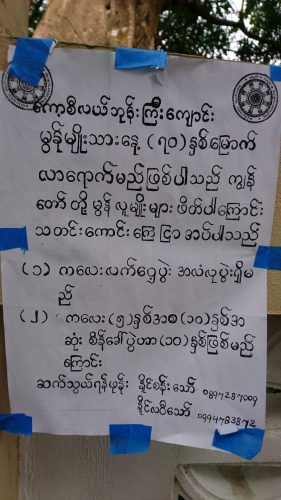 ကောစီလယ်ဘုန်းကြီးကျောင်း
မွန်မျိုးသားနေ့ (၇၀) နှစ်မြောက်
လာရောက်မည်ဖြစ်ပါသည် ကျွန်
တော် တို့ မွန် လူမျိုးများ ဖိတ်ပါကြောင်း
သတင်းကောင်းကြေ ငြာ အပ်ပါသည်
(၁) ကလေးလက်ဝှေ့ပွဲး အလံလုပွဲးရှိမ
ည်
(၂) ကလေး (၅) နှစ်အစ (၁၀) နှစ်အ
ဆုံး စိန်ခေါ်ပွဲဟာ (၁၀) နှစ်ဖြစ်မည်
ကြောင်း
ဆက်သွယ်ရန်ဖုန်း နိုင်စန်းသော် 0897287009
နိုင်လဝီသော် 0994783872